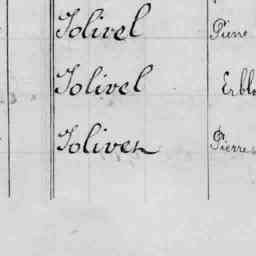 Jolivel Pierre
Jolivel
Joliven Pierre